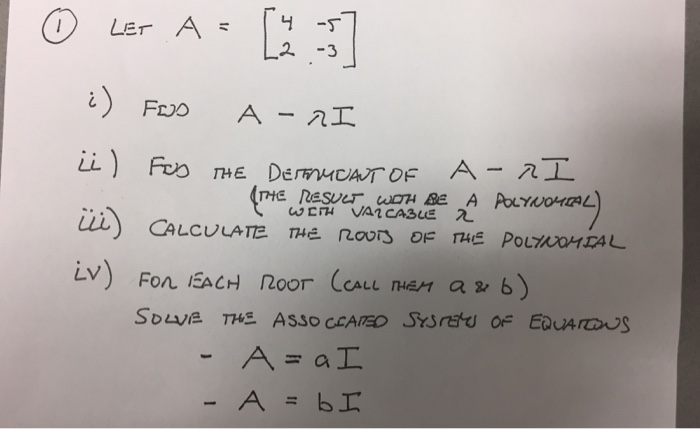 ① LET A = [4 -5
2 -3]
i) FIND A - λI
ii) FIND THE DETERMINANT OF A - λI
(THE RESULT WITH BE A POLYNOMIAL)
WITH VARIABLE λ
iii) CALCULATE THE ROOTS OF THE POLYNOMIAL
iv) FOR EACH ROOT (CALL THEM a & b)
SOLVE THE ASSOCIATED SYSTEMS OF EQUATIONS
- A = aI
- A = bI